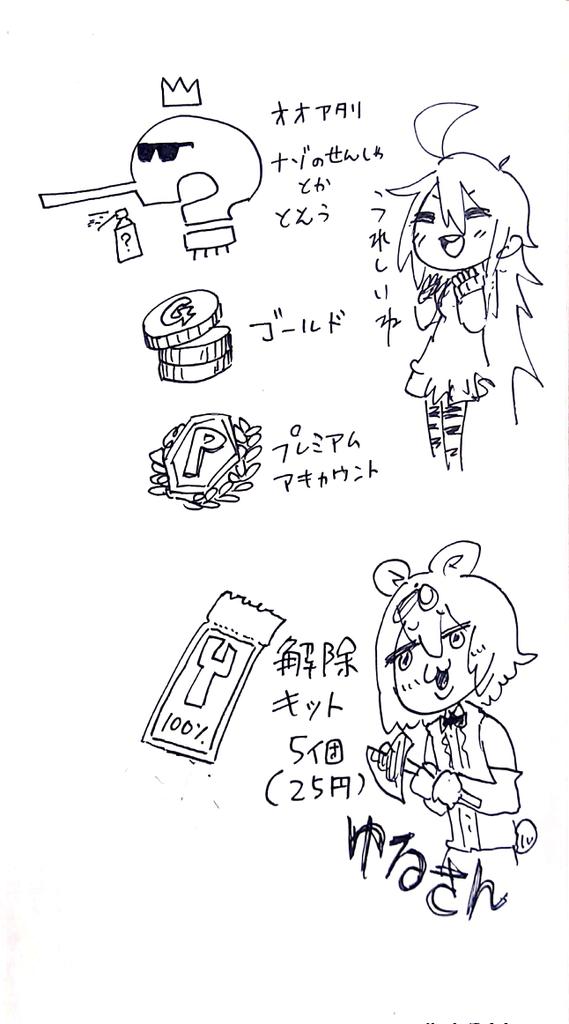 オオアタリ
ナゾのせんしゃ
とか
とんう
うれしいね
?
G
ゴールド
P
プレミアム
アカウント
100%
解除
キット
5個
(25円)
ゆるさん